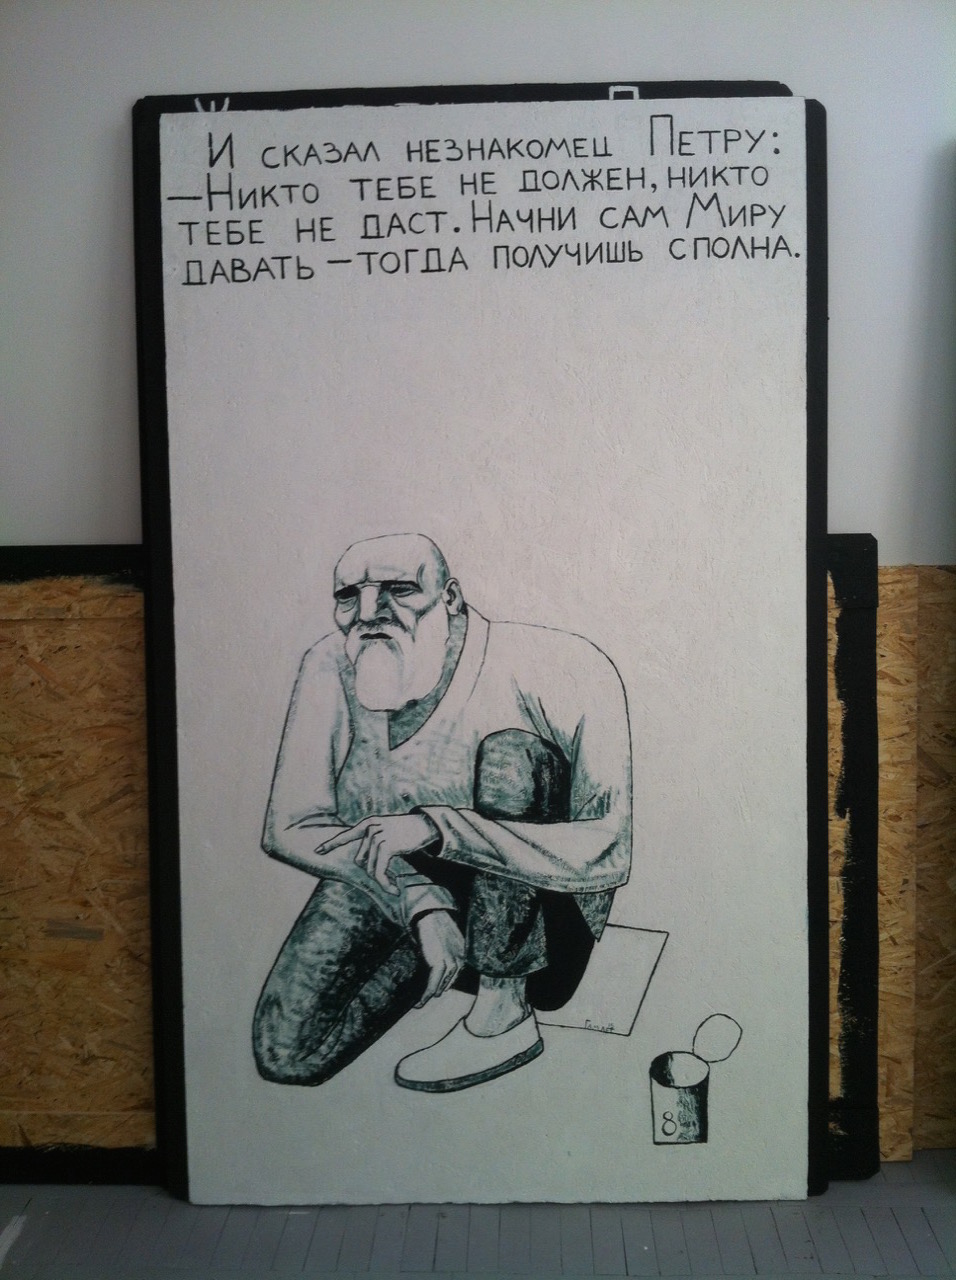 И СКАЗАЛ НЕЗНАКОМЕЦ ПЕТРУ:
—НИКТО ТЕБЕ НЕ ДОЛЖЕН, НИКТО
ТЕБЕ НЕ ДАСТ. НАЧНИ САМ МИРУ
ДАВАТЬ – ТОГДА ПОЛУЧИШЬ СПОЛНА.
8